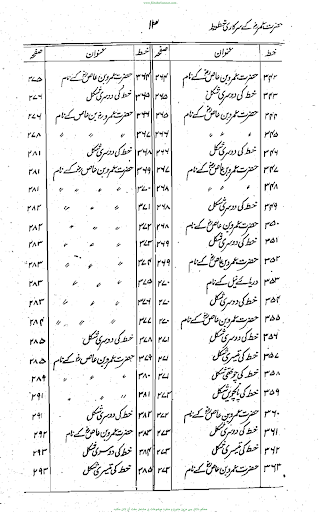 حضرت عمرؓ کے سرکاری خطوط ۱۳
خط عنوان صفحہ خط عنوان صفحہ
۳۴۲ حضرت عمرو بن عاصؓ کے نام ۲۶۴ ۳۶۴ حضرت عمرو بن عاصؓ کے نام ۲۷۵
۳۴۳ خط کی دوسری شکل ۲۶۵ ۳۶۵ خط کی دوسری شکل ۲۷۶
۳۴۴ حضرت عمرو بن عاصؓ کے نام ۲۶۵ ۳۶۶ حضرت عمرو بن عاصؓ کے نام ۲۷۶
۳۴۵ " " " ۲۶۶ ۳۶۷ " " " ۲۷۸
۳۴۶ خط کی دوسری شکل ۲۶۶ ۳۶۸ خط کی دوسری شکل ۲۸۱
۳۴۷ حضرت عمرو بن عاصؓ کے نام ۲۶۷ ۳۶۹ حضرت عمرو بن عاصؓ کے نام ۲۸۱
۳۴۸ " " " ۲۶۸ ۳۷۰ " " " ۲۸۱
۳۴۹ خط کی دوسری شکل ۲۶۸ ۳۷۱ " " " ۲۸۲
۳۵۰ حضرت عمرو بن عاصؓ کے نام ۲۶۸ ۳۷۲ " " " ۲۸۲
۳۵۱ خط کی دوسری شکل ۲۶۹ ۳۷۳ " " " ۲۸۳
۳۵۲ حضرت عمرو بن عاصؓ کے نام ۲۶۹ ۳۷۴ " " " ۲۸۳
۳۵۳ دریائے نیل کے نام ۲۷۰ ۳۷۵ " " " ۲۸۳
۳۵۴ خط کی دوسری شکل ۲۷۰ ۳۷۶ " " " ۲۸۳
۳۵۵ حضرت عمرو بن عاصؓ کے نام ۲۷۰ ۳۷۷ " " " ۲۸۴
۳۵۶ خط کی دوسری شکل ۲۷۱ ۳۷۸ خط کی دوسری شکل ۲۸۵
۳۵۷ خط کی تیسری شکل ۲۷۱ ۳۷۹ حضرت عمرو بن عاصؓ کے نام ۲۸۵
۳۵۸ خط کی چوتھی شکل ۲۷۱ ۳۸۰ " " " ۲۸۹
۳۵۹ خط کی پانچویں شکل ۲۷۲ ۳۸۱ " " " ۲۹۱
۳۶۰ حضرت عمرو بن عاصؓ کے نام ۲۷۲ ۳۸۲ خط کی دوسری شکل ۲۹۱
۳۶۱ خط کی دوسری شکل ۲۷۳ ۳۸۳ حضرت عمرو بن عاصؓ کے نام ۲۹۲
۳۶۲ خط کی تیسری شکل ۲۷۳ ۳۸۴ خط کی دوسری شکل ۲۹۳
۳۶۳ حضرت عمرو بن عاصؓ کے نام ۲۷۳ ۳۸۵ خط کی تیسری شکل ۲۹۳